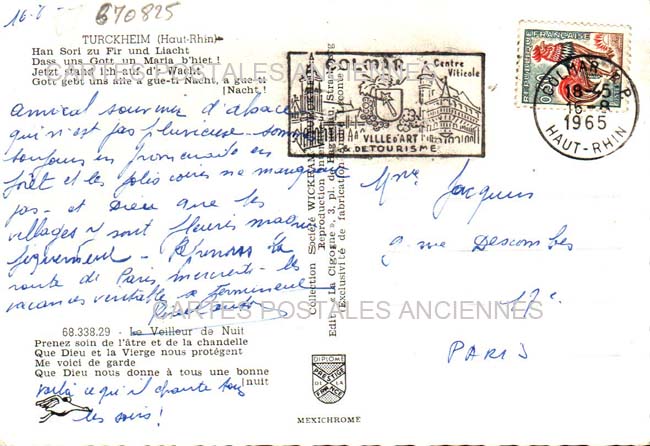 16-8-
670825
TURCKHEIM (Haut-Rhin)
Han Sori zu Fir und Liacht
Dass uns Gott un Maria b'hiet !
Jetzt stand ich auf d'r Wacht
Gott gebt uns alle a gue-ti Nacht, a gue-ti
[Nacht !
Amical souvenir d'alsace
qui n'est pas pluvieuse - sommes
toujours en promenade en
forêt et les jolis coins ne manquent
pas - et Dieu que les
villages y sont fleuris magni
fiquement - Reprenons la
route de Paris mercredi - les
vacances se terminent
68.338.29 - Le Veilleur de Nuit
Prenez soin de l'âtre et de la chandelle
Que Dieu et la Vierge nous protègent
Me voici de garde
Que Dieu nous donne à tous une bonne
[nuit
voilà ce qu'il chante tous
les soirs !
Collection Société WICKHAM
Reproduction
Edit. « La Cigogne », 3, pl. de
(Exclusivité de fabrication
DIPLOME
PRESTIGE
DE LA
FRANCE
MEXICHROME
COLMAR
Centre
Viticole
VILLE D'ART
& DE TOURISME
REPUBLIQUE FRANÇAISE
COLMAR R.P.
18-45
16-8
1965
HAUT-RHIN
Mme Jacquin
9 rue Descombes
17e
PARIS
CARTES POSTALES ANCIENNES
CARTES POSTALES ANCIENNES